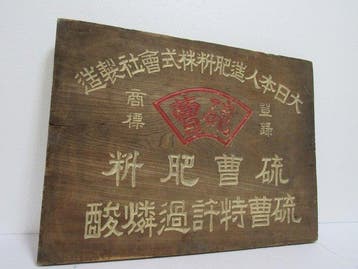 大日本人造肥料株式會社製造
登錄
商標
硫曹
硫曹肥料
硫曹特許過燐酸